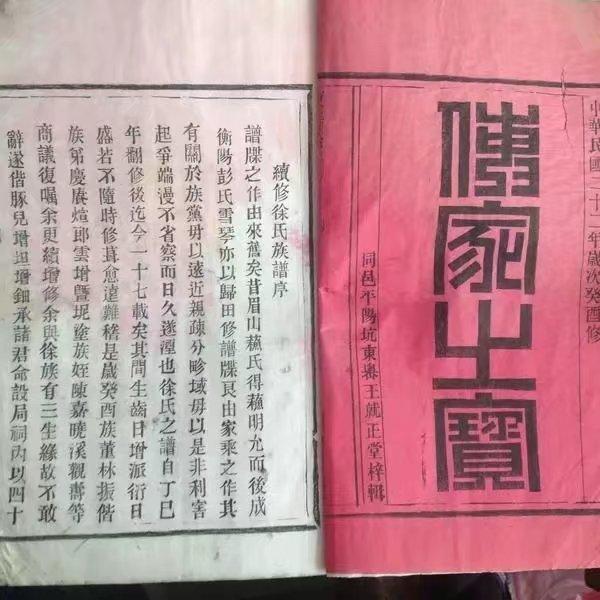 中華民國二十二年歲次癸酉修
傳家之寶
同邑平陽坑東壽王就正堂梓輯
續修徐氏族譜序
譜牒之作由來舊矣昔眉山蘇氏得蘇明允而後成
衡陽彭氏雪琴亦以歸田修譜牒良由家乘之作其
有關於族黨毋以遠近親疎分畛域毋以是非利害
起爭端漫不省察而日久遂湮也徐氏之譜自丁巳
年翻修後迄今一十七載矣其間生齒日增派衍日
盛若不隨時修葺愈遠難稽是歲癸酉族董林振偕
族弟慶賡煊郎雲增暨坭塗族姪陳嘉曉溪觀壽等
商議復囑余更續增修余與徐族有三生緣故不敢
辭遂偕豚兒增坦增鈿承諸君命設局祠內以四十